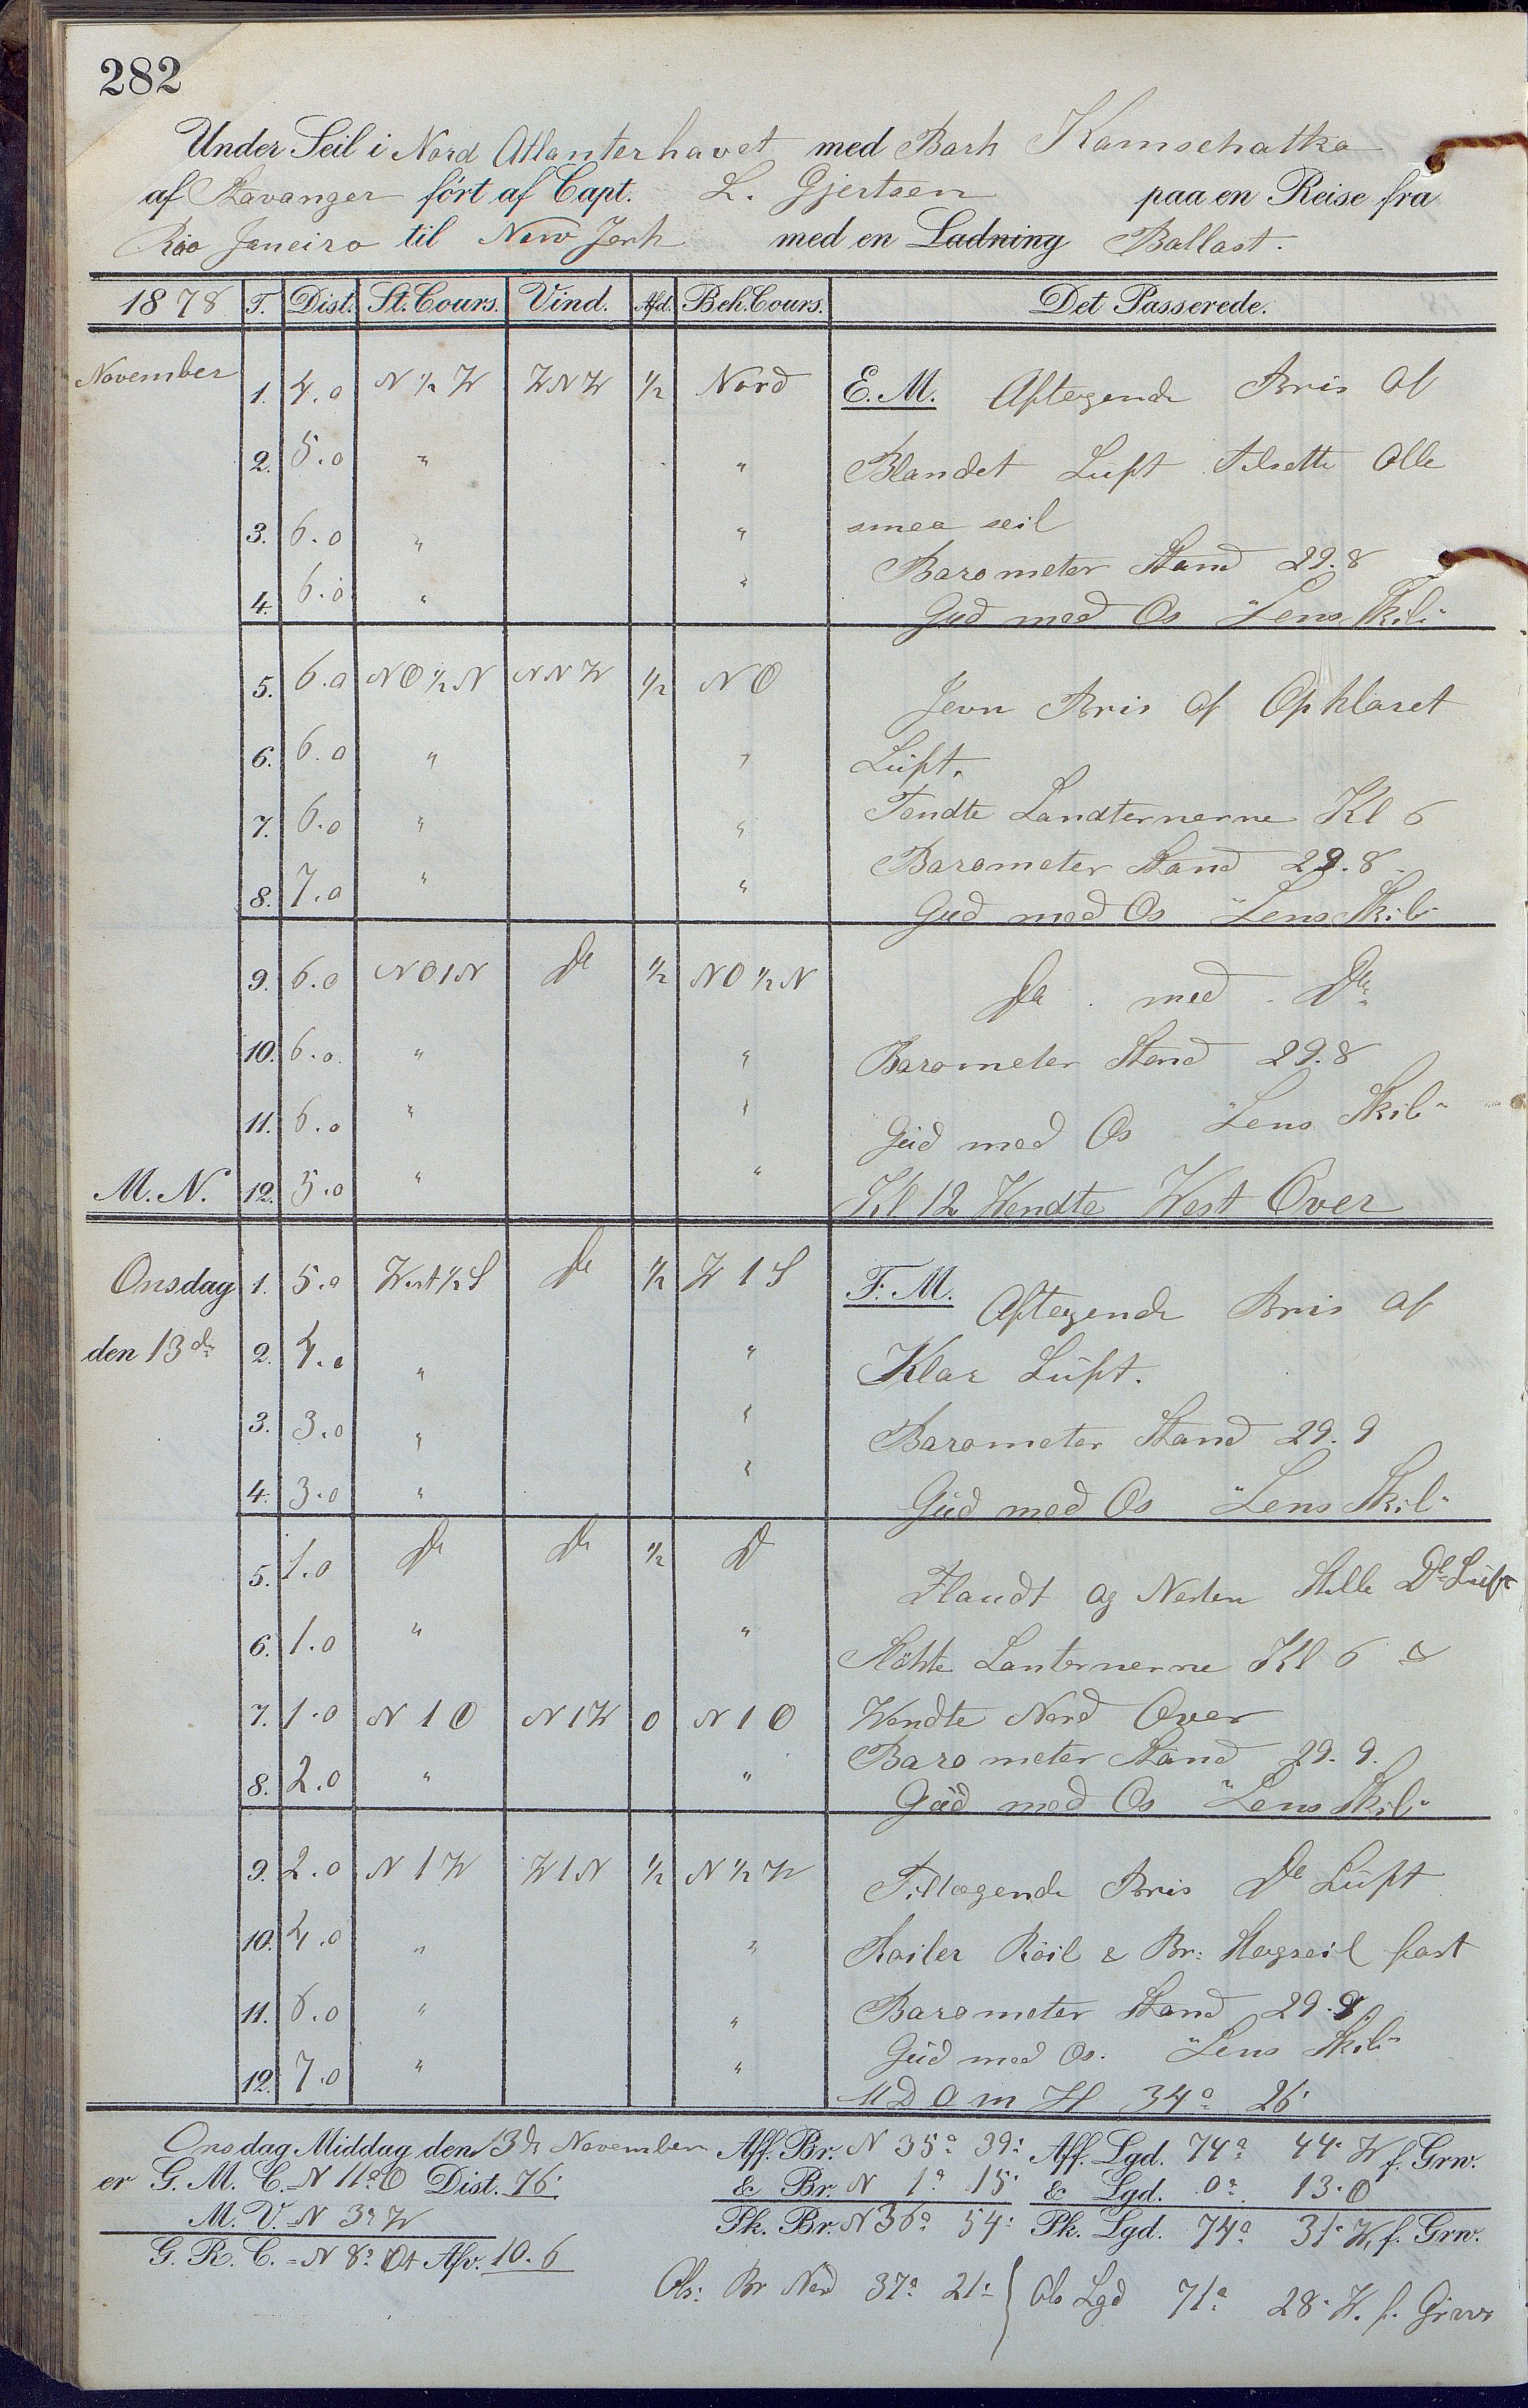 282
Under Seil i Nord Atlanterhavet med Bark Kamschatka
af Stavanger ført af Capt. L. Gjertsen paa en Reise fra
Rio Janeiro til New York med en Ladning Ballast.
1878 T. Dist. St. Cours. Vind. Afd. Beh. Cours. Det Passerede.
November 1. 4.0 N ½ W WNW ½ Nord E. M. Aftagende Bris af
2. 5.0 " " Blandet Luft tilsatte Alle
3. 6.0 " " smaa seil
Barometer Stand 29.8
4. 6.0 " " Gud med Os "Lens Skib"
5. 6.0 NO ½ N NNW ½ NO Jevn Bris af Opklaret
6. 6.0 " " Luft.
7. 6.0 " " Tendte Landternerne Kl 6
Barometer Stand 29.8
8. 7.0 " " Gud med Os "Lens Skib"
9. 6.0 NO1N Do ½ NO ½ N Do med Do
10. 6.0 " " Barometer Stand 29.8
11. 6.0 " " Gud med Os "Lens Skib"
M. N. 12. 5.0 " " Kl 12 Vendte West Over
Onsdag 1. 5.0 West ½ S Do ½ W 1 S F. M. Aftagende Bris af
den 13de 2. 4.0 " " Klar Luft.
3. 3.0 " " Barometer Stand 29.9
4. 3.0 " " Gud med Os "Lens Skib"
5. 1.0 Do Do ½ Do Flaudt og Nesten Stille Do Luft
6. 1.0 " " Slökte Lanternerne Kl 6 &
7. 1.0 N 1 O N1W 0 N 1 O Vendte Nord Over
Barometer Stand 29.9.
8. 2.0 " " Gud med Os "Lens Skib"
9. 2.0 N 1 W W1N ½ N ½ W Tiltagende Bris Do Luft
10. 4.0 " " Röil & Br: Stagseil fast
11. 6.0 " " Barometer Stand 29.9
Gud med Os. "Lens Skib"
12. 7.0 " " 34° 26'
Onsdag Middag den 13de November Aff. Br. N 35° 39' Aff. Lgd. 74° 44' W f. Grw.
er G. M. C. = N 11° O Dist. 76' & Br. N 1° 15' & Lgd. 0° 13' O
M. V. = N 3° W Pk. Br. N 36° 54' Pk. Lgd. 74° 31' W. f. Grw.
G. R. C. = N 8° Ost Afv. 10.6
Obs: Br Nord 37° 21' } Obs Lgd 71° 28' W. f. Grw